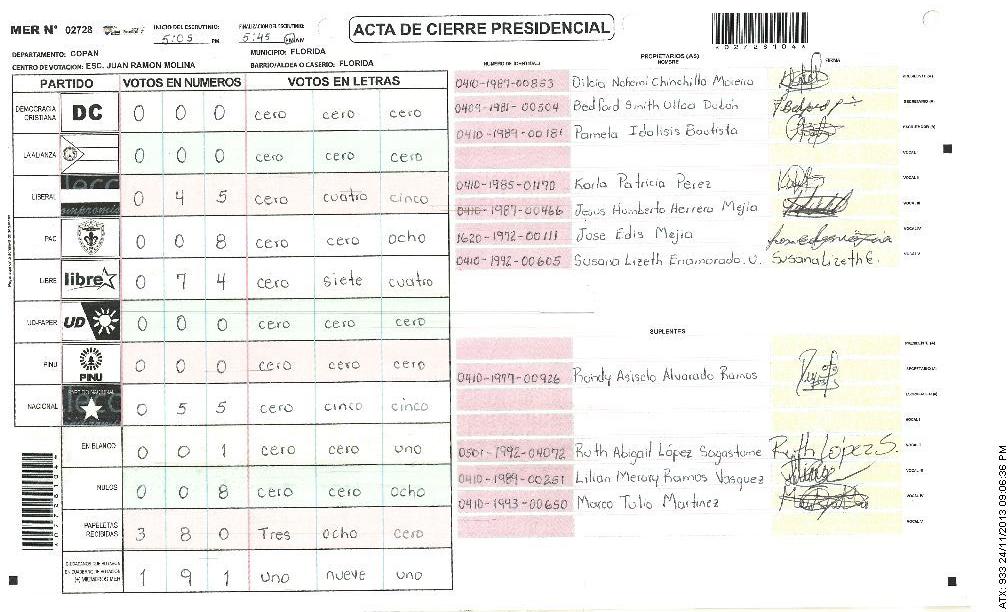 MER Nº 02728
INICIO DEL ESCRUTINIO: 5:05 PM
FINALIZACION DEL ESCRUTINIO: 5:45 AM
ACTA DE CIERRE PRESIDENCIAL
DEPARTAMENTO: COPAN
MUNICIPIO: FLORIDA
CENTRO DE VOTACION: ESC. JUAN RAMON MOLINA
BARRIO/ALDEA O CASERIO: FLORIDA
PARTIDO VOTOS EN NUMEROS VOTOS EN LETRAS
DEMOCRACIA CRISTIANA DC 0 0 0 cero cero cero
LA ALIANZA 0 0 0 cero cero cero
LIBERAL 0 4 5 cero cuatro cinco
PAC 0 0 8 cero cero ocho
LIBRE libre 0 7 4 cero siete cuatro
UD-FAPER UD 0 0 0 cero cero cero
PINU PINU 0 0 0 cero cero cero
NACIONAL 0 5 5 cero cinco cinco
EN BLANCO 0 0 1 cero cero uno
NULOS 0 0 8 cero cero ocho
PAPELETAS RECIBIDAS 3 8 0 Tres ocho cero
CIUDADANOS QUE VOTARON EN CUADERNO DE VOTACION (+) MIEMBROS MER 1 9 1 uno nueve uno
PROPIETARIOS (AS)
NUMERO DE IDENTIDAD NOMBRE FIRMA
0410-1987-00853 Dilcia Nohemi Chinchilla Moreno PRESIDENTE (A)
0409-1981-00504 Bedford Smith Ulloa Dubón SECRETARIO (A)
0410-1989-00181 Pamela Idalisis Bautista ESCRUTADOR (A)
VOCAL I
0410-1985-01170 Karla Patricia Perez VOCAL II
0410-1987-00466 Jesus Humberto Herrera Mejia VOCAL III
1620-1972-00111 Jose Edis Mejia VOCAL IV
0410-1992-00605 Susana Lizeth Enamorado. U. Susana Lizeth E. VOCAL V
SUPLENTES
PRESIDENTE (A)
0410-1977-00926 Randy Asiselo Alvarado Ramos SECRETARIO (A)
ESCRUTADOR (A)
VOCAL I
0501-1992-04072 Ruth Abigail López Sagastume Ruth López S. VOCAL II
0410-1989-00251 Lilian Merary Ramos Vasquez VOCAL III
0410-1993-00650 Marco Tulio Martinez VOCAL IV
VOCAL V
ATX: 933 24/11/2013 09:06:36 PM